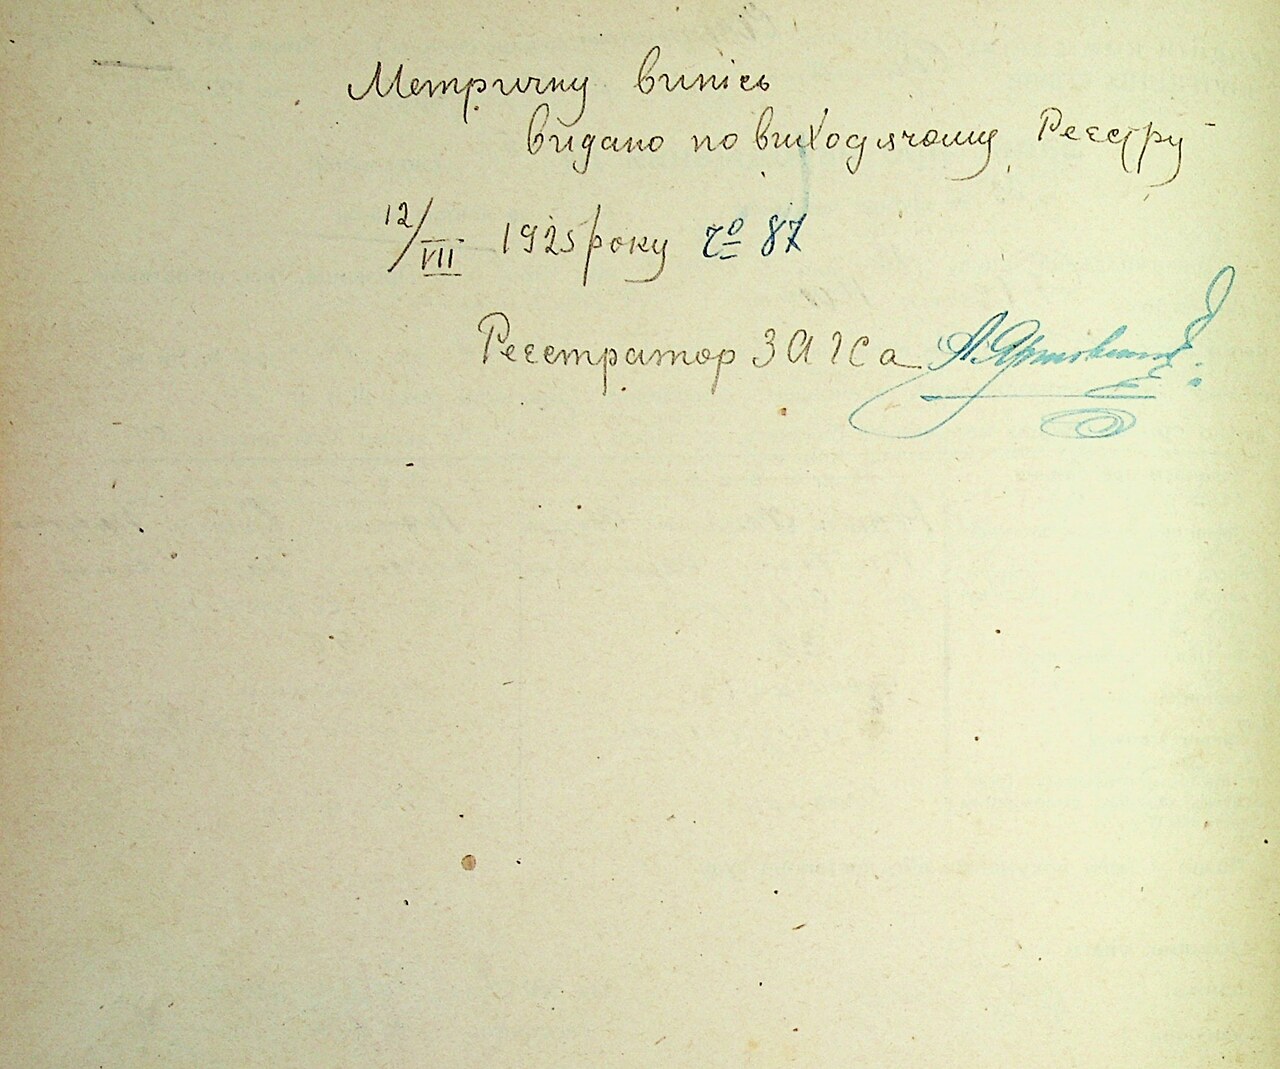 Метричну випісь
видано по виходячому Реєстру
12/VII 1925 року чº 87
Реєстратор ЗАГСа